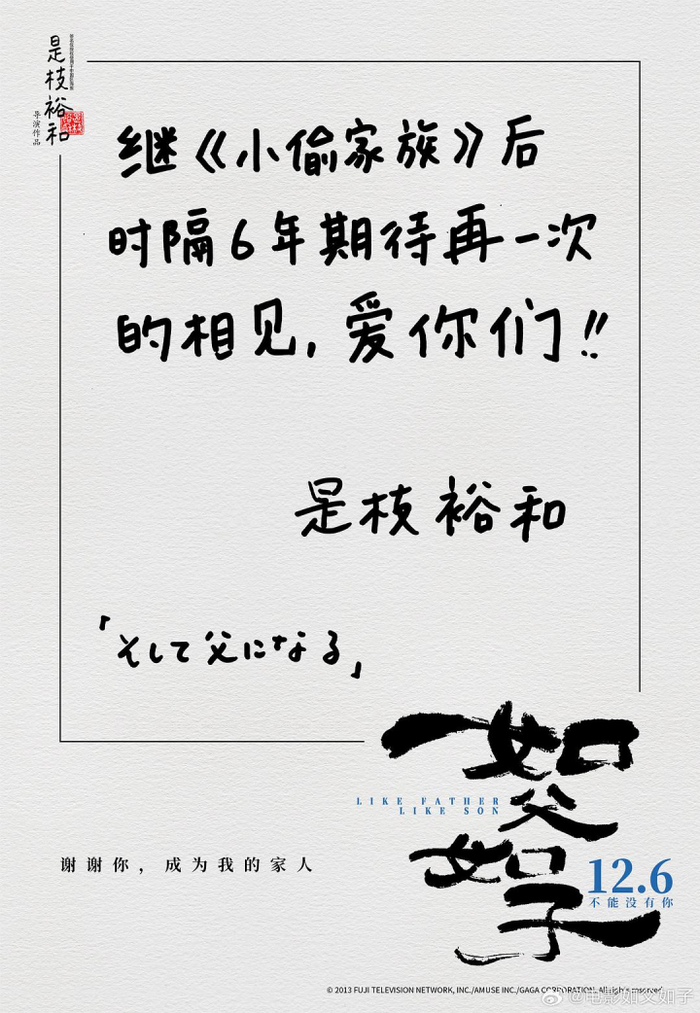 是枝裕和
导演作品
继《小偷家族》后
时隔6年期待再一次
的相见,爱你们!!
是枝裕和
「そして父になる」
如父如子
LIKE FATHER
LIKE SON
谢谢你,成为我的家人
12.6
不能没有你
© 2013 FUJI TELEVISION NETWORK, INC./AMUSE INC./GAGA CORPORATION. All rights reserved.
@电影如父如子